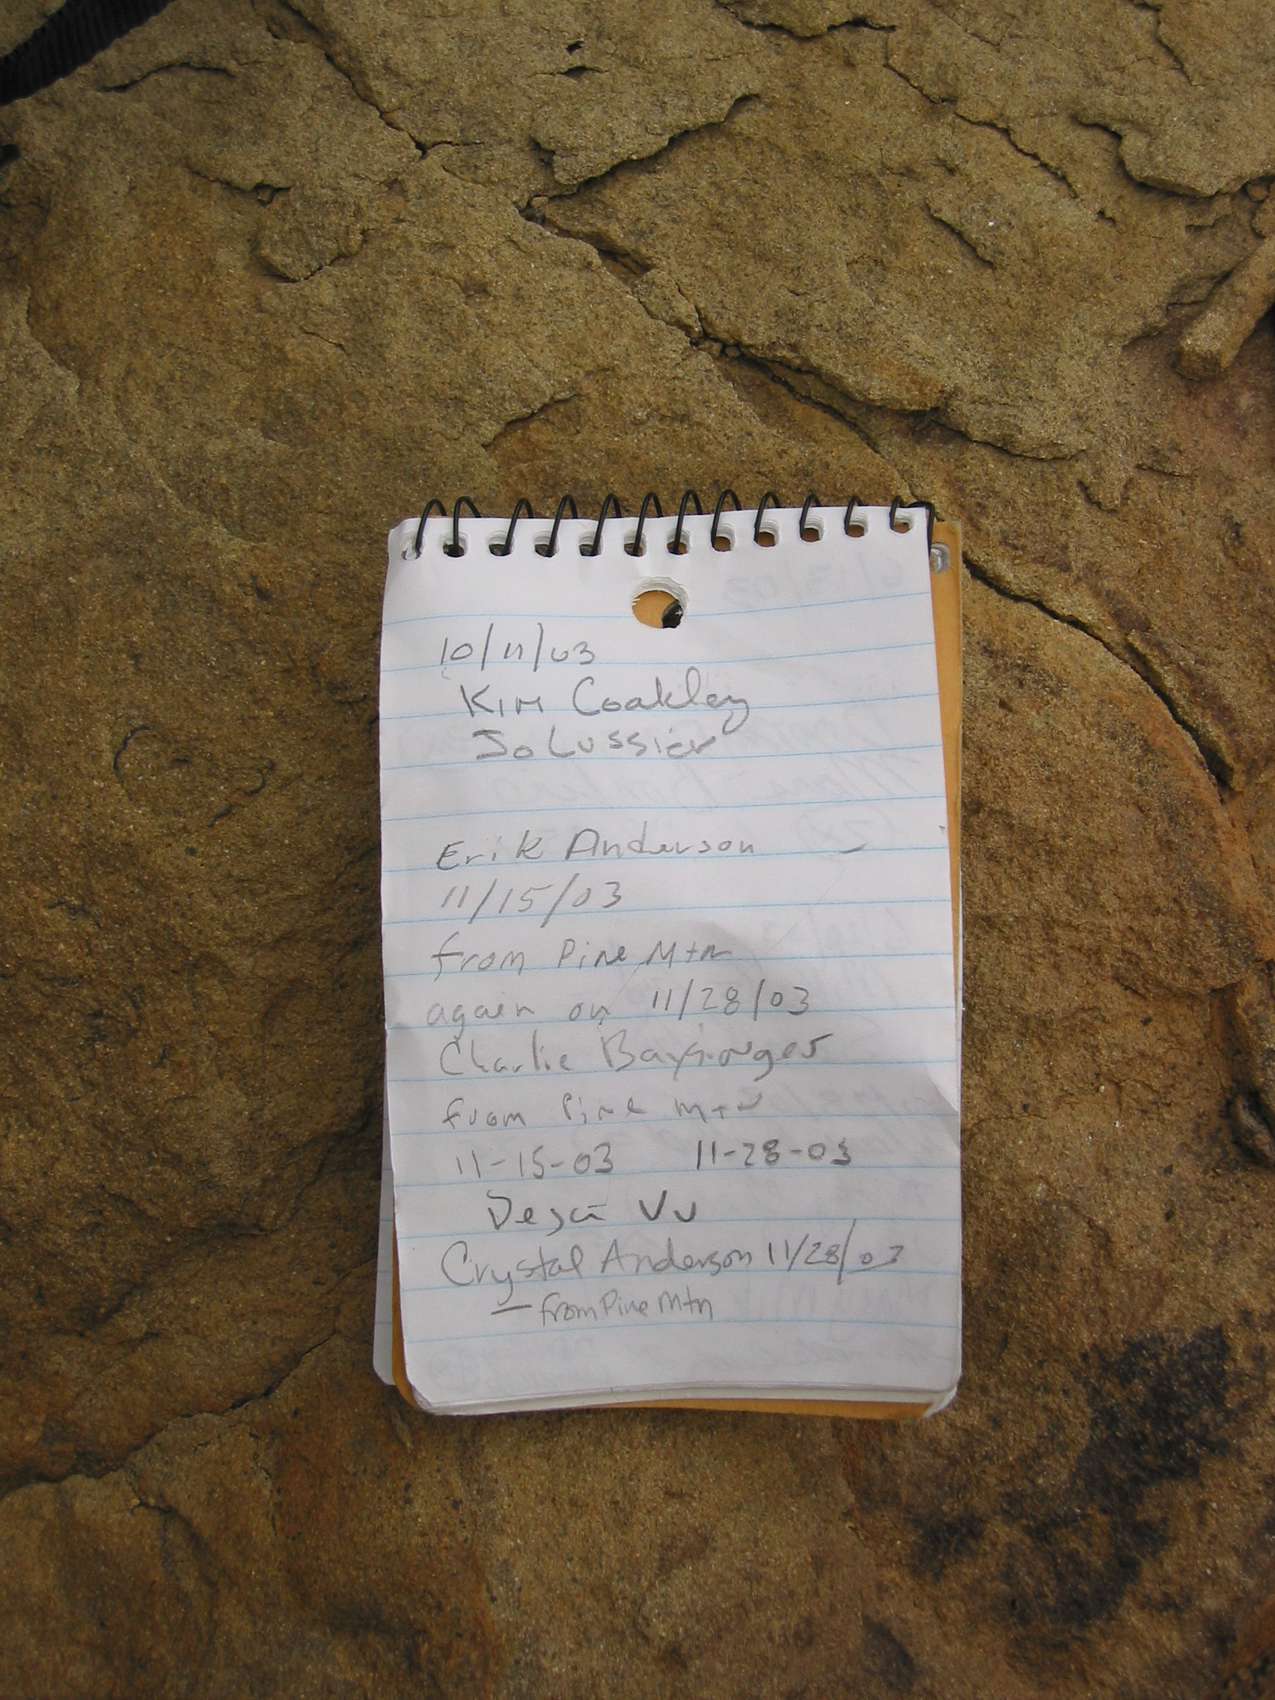 10/11/03
Kim Coakley
Jo Lussier
Erik Anderson
11/15/03
from Pine Mtn
again on 11/28/03
Charlie
from Pine Mtn
11-15-03 11-28-03
Deja Vu
Crystal Anderson 11/28/03
— from Pine Mtn